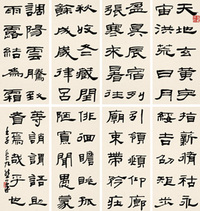 天地玄黃宇
宙洪荒日月
盈昃辰宿列
張寒來暑往
秋收冬藏閏
餘成歲律呂
調陽雲騰致
雨露結為霜
指薪修祜永
綏吉劭矩步
引領俯仰廊
廟束帶矜莊
徘徊瞻眺孤
陋寡聞愚蒙
等誚謂語助
者焉哉乎也